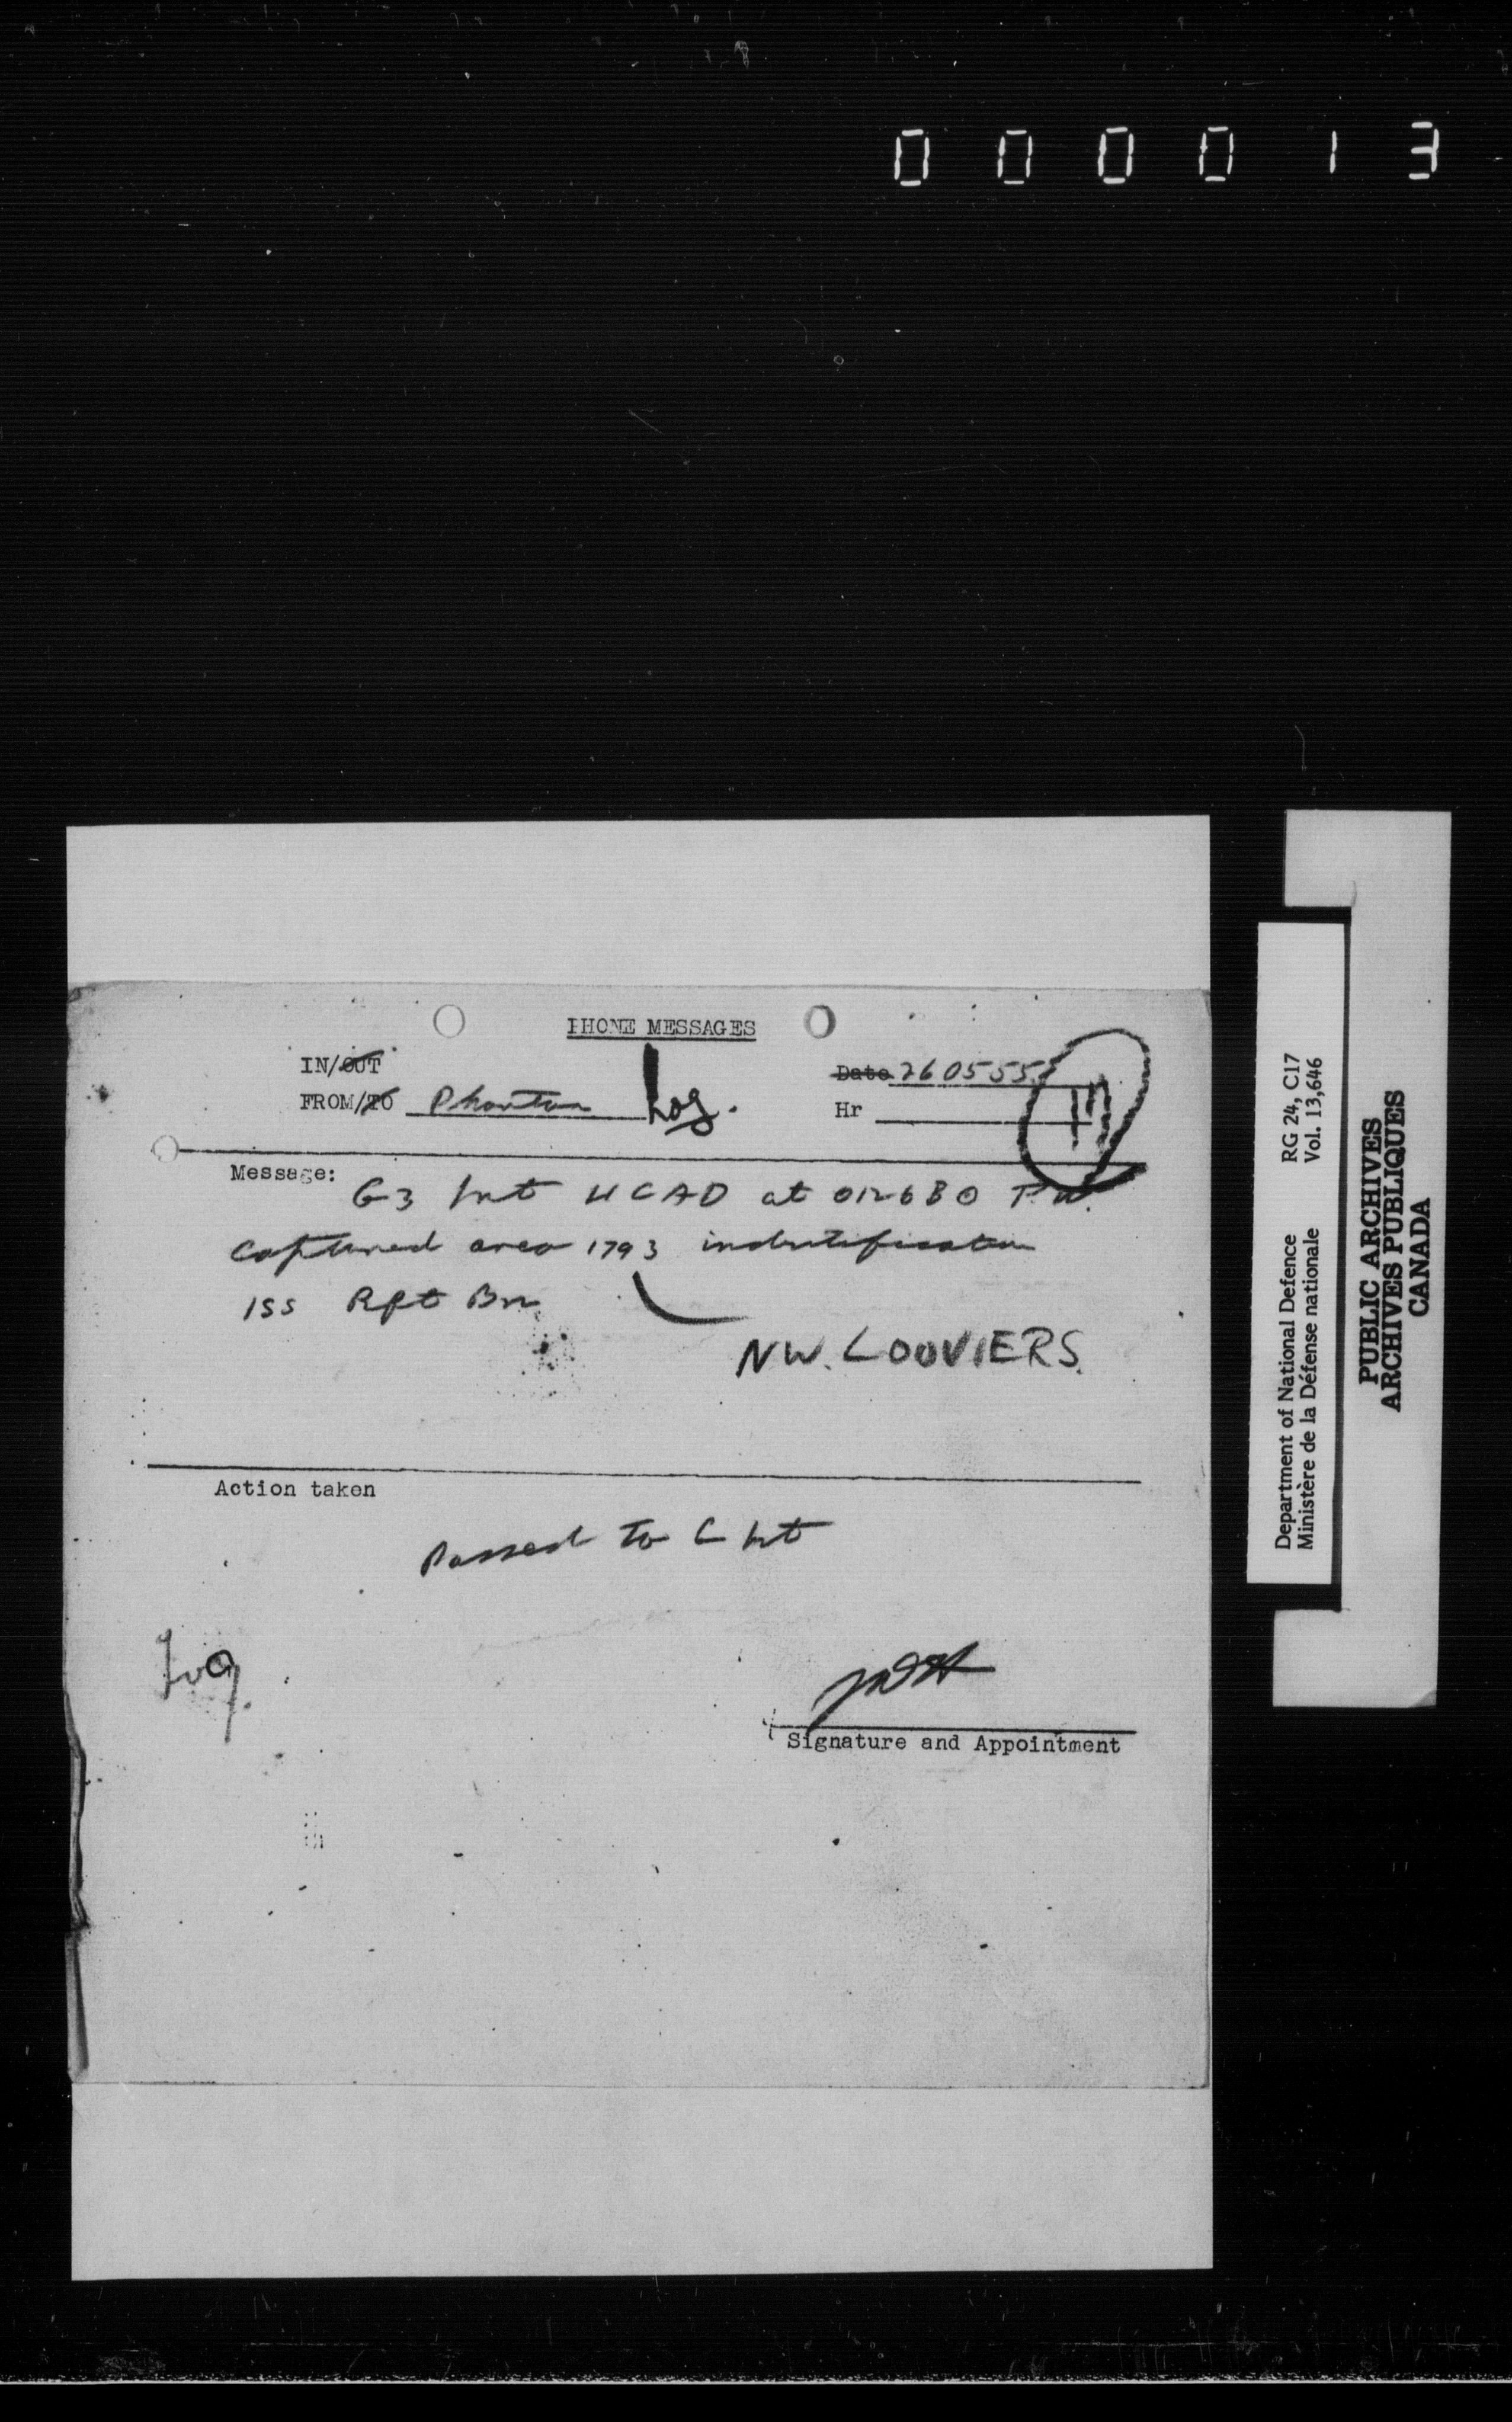 000013
PHONE MESSAGES
IN/OUT
Date 260555
FROM/TO Phantom Log.
Hr
17
Message:
G3 Int 4CAD at 012680 PW
captured area 1793 indutification
ISS Rft Bn
NW. LOUVIERS.
Action taken
Passed to C Int
Log.
Signature and Appointment
Department of National Defence RG 24, C17
Ministère de la Défense nationale Vol. 13,646
PUBLIC ARCHIVES
ARCHIVES PUBLIQUES
CANADA